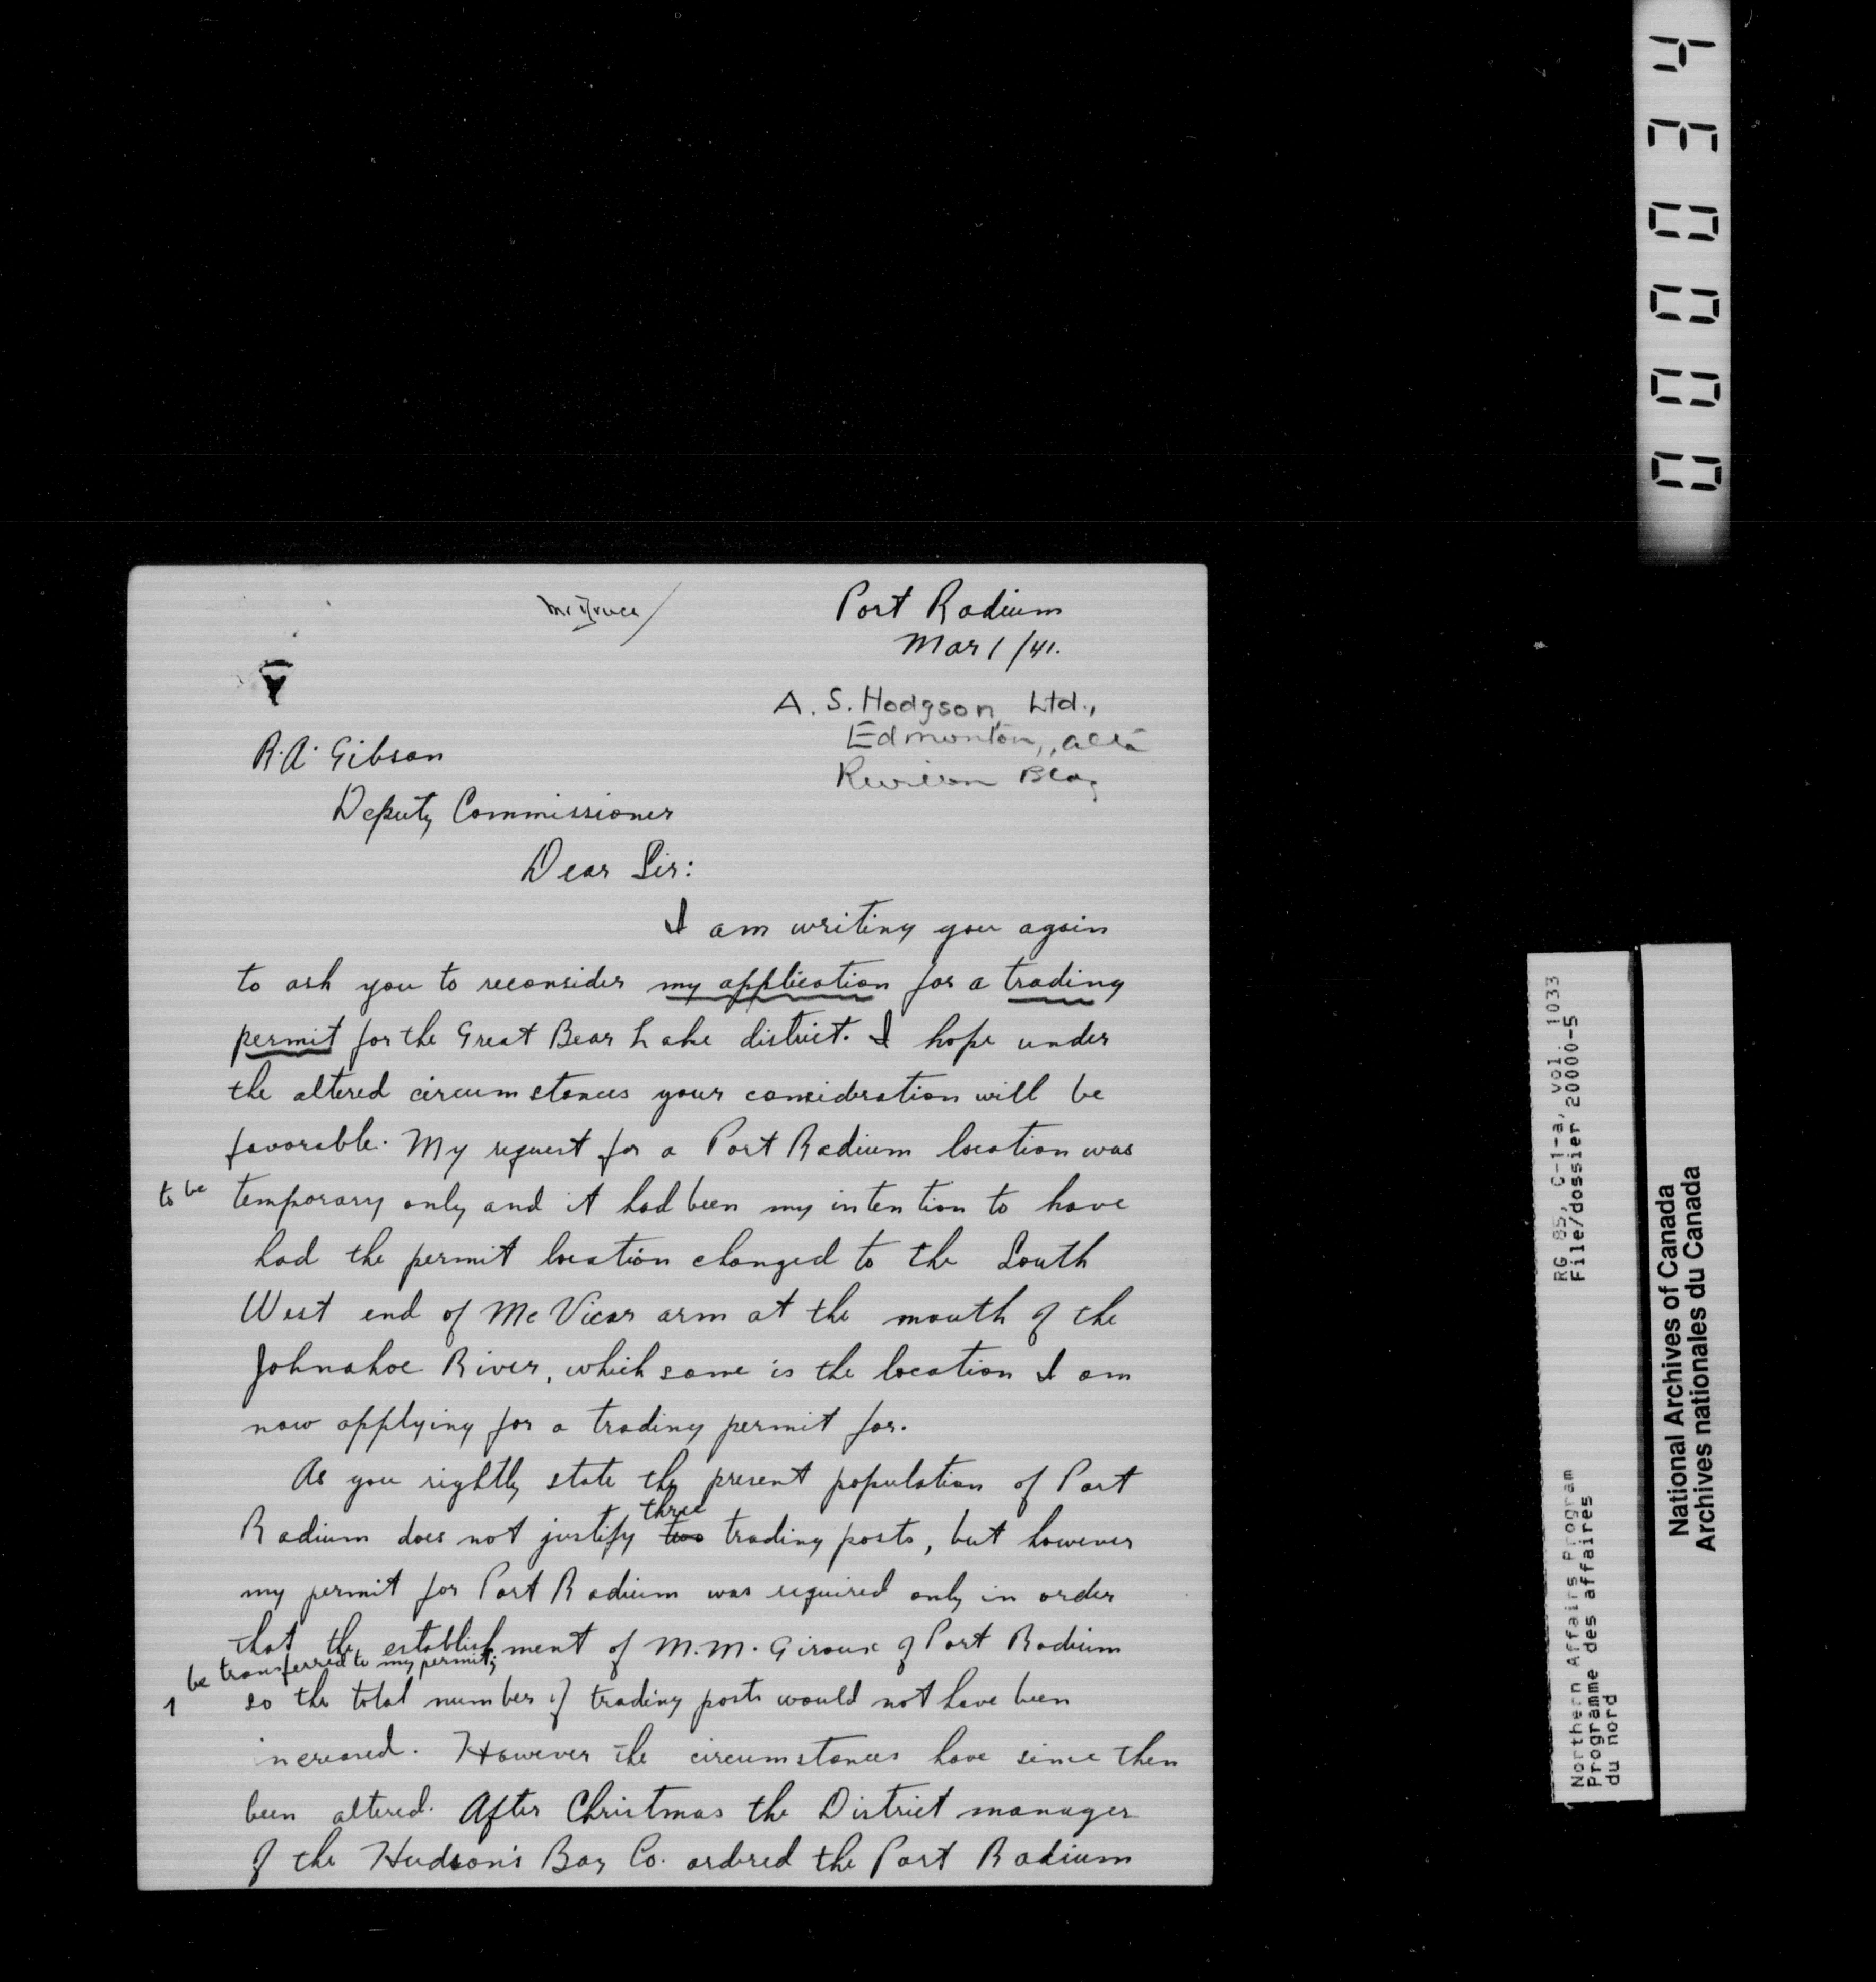 Port Radium
Mar 1/41.
A. S. Hodgson, Ltd.,
Edmonton, Alta
Revillon Bldg
R.A. Gibson
Deputy Commissioner
Dear Sir:
I am writing you again
to ask you to reconsider my application for a trading
permit for the Great Bear Lake district. I hope under
the altered circumstances your consideration will be
favorable. My request for a Port Radium location was
to be temporary only and it had been my intention to have
had the permit location changed to the South
West end of McVicar arm at the mouth of the
Johnahoe River, which same is the location I am
now applying for a trading permit for.
As you rightly state the present population of Port
three
Radium does not justify two trading posts, but however
my permit for Port Radium was required only in order
that the establishment of M.M. Giroux of Port Radium
be transferred to my permit;
so the total number of trading posts would not have been
increased. However the circumstances have since then
been altered. After Christmas the District manager
of the Hudson's Bay Co. ordered the Port Radium
000034
RG 85, C-1-a, vol. 1033
File/dossier 20000-5
Northern Affairs Program
Programme des affaires
du nord
National Archives of Canada
Archives nationales du Canada